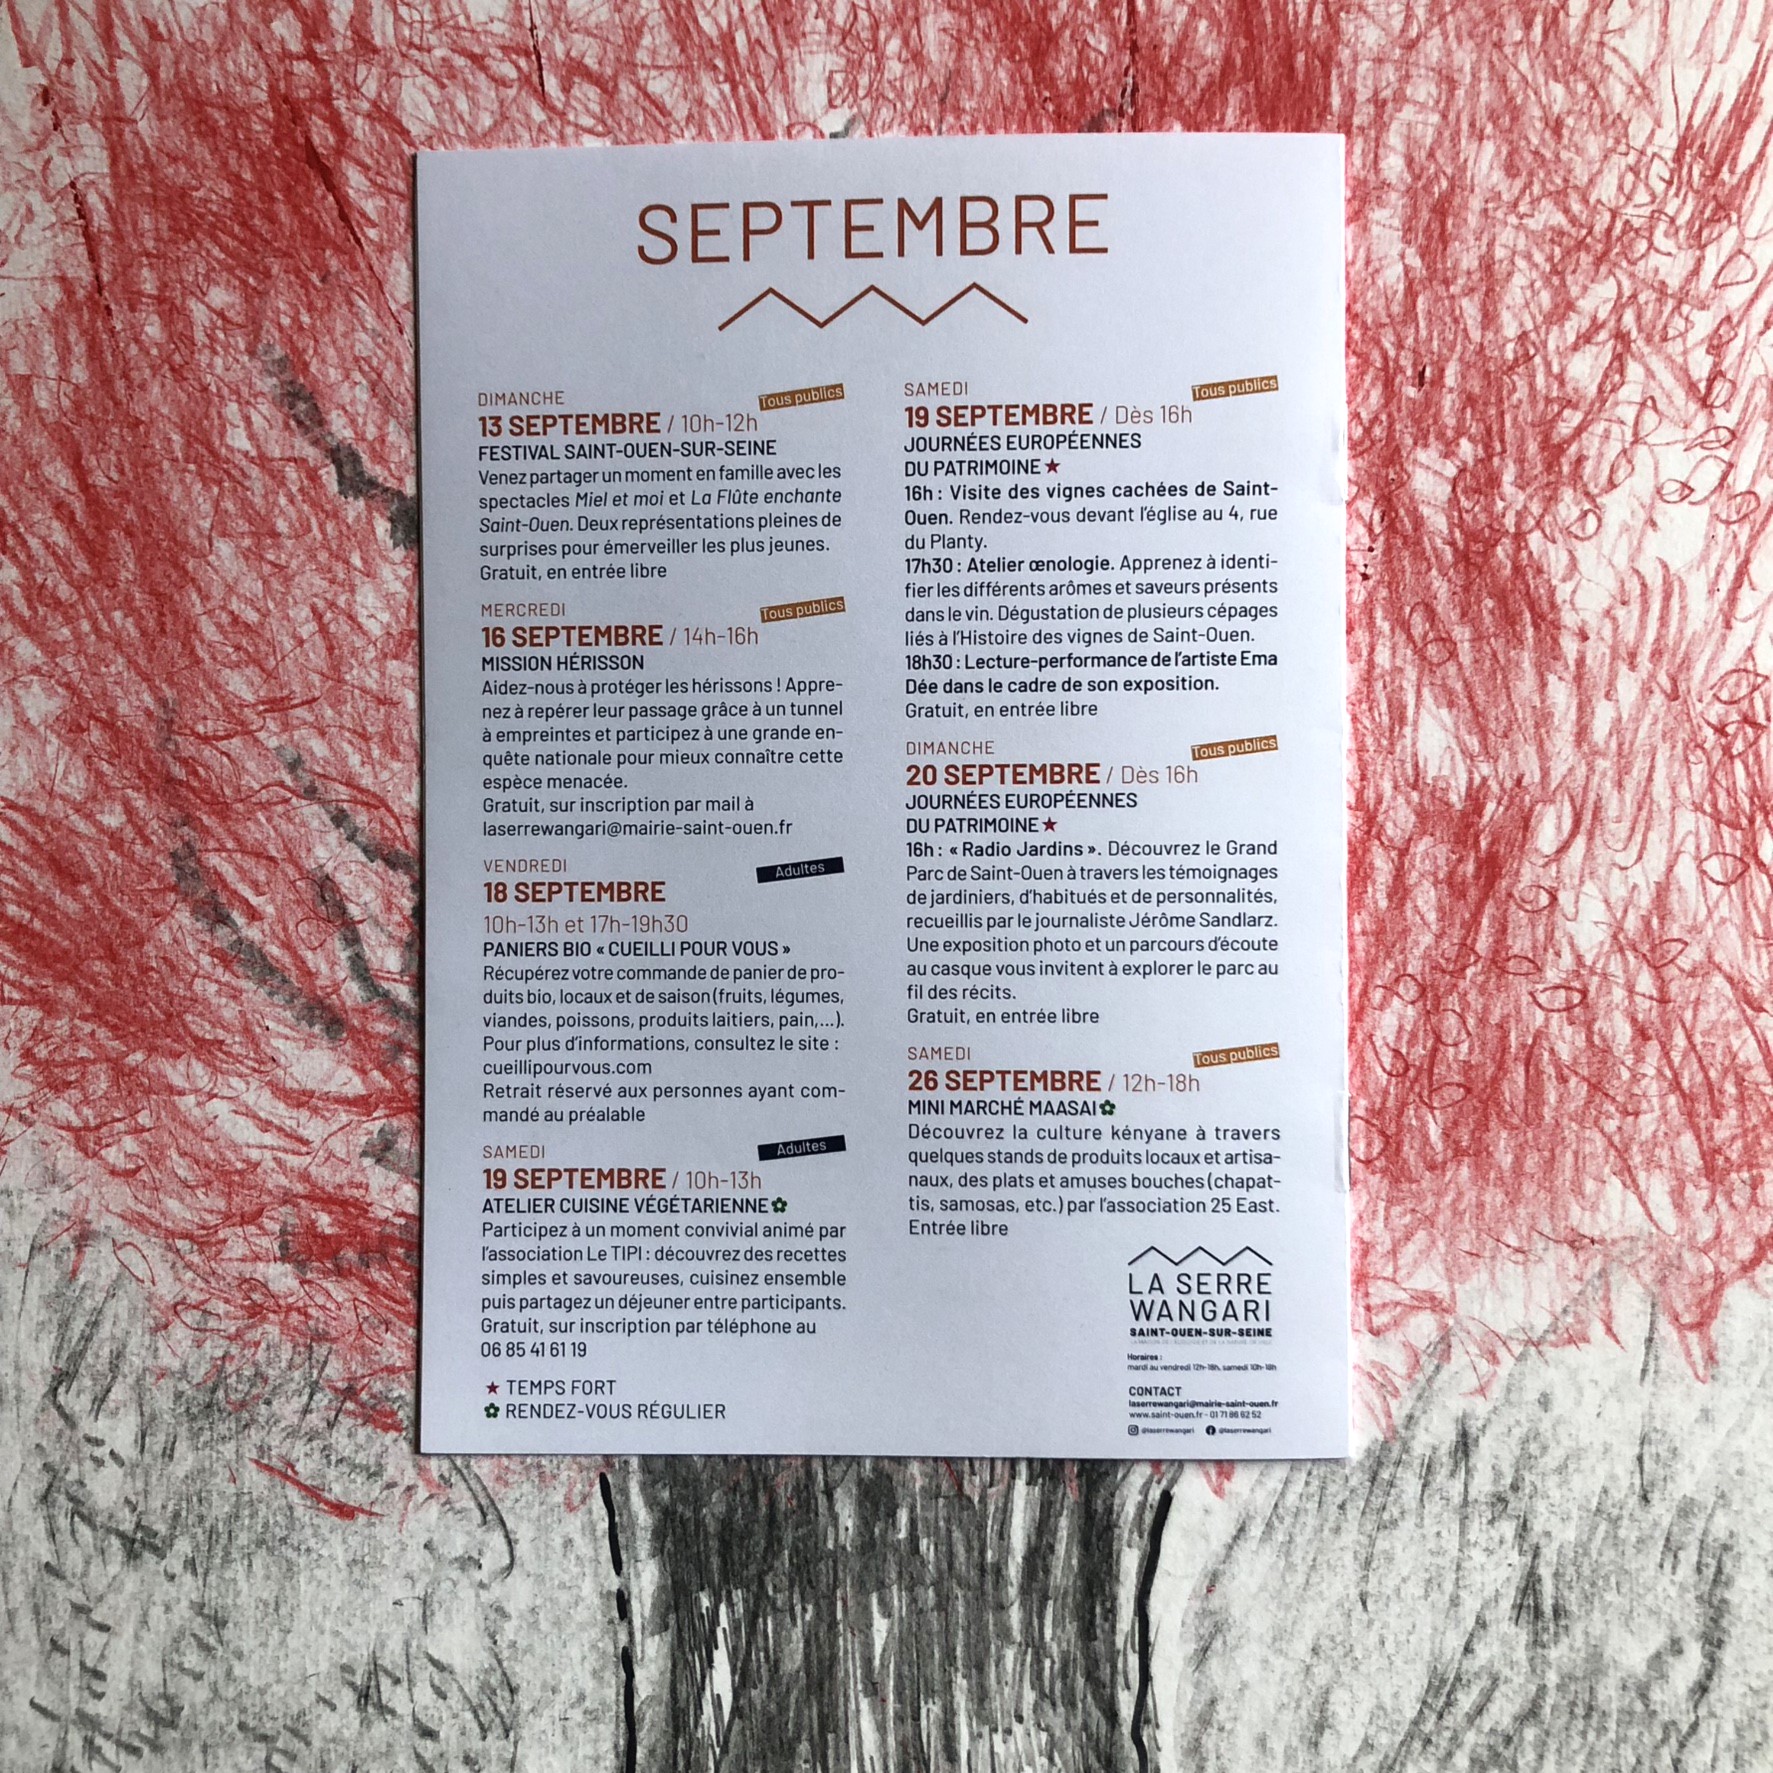 SEPTEMBRE
DIMANCHE
Tous publics
13 SEPTEMBRE / 10h-12h
FESTIVAL SAINT-OUEN-SUR-SEINE
Venez partager un moment en famille avec les
spectacles Miel et moi et La Flûte enchante
Saint-Ouen. Deux représentations pleines de
surprises pour émerveiller les plus jeunes.
Gratuit, en entrée libre
MERCREDI
Tous publics
16 SEPTEMBRE / 14h-16h
MISSION HÉRISSON
Aidez-nous à protéger les hérissons ! Appre-
nez à repérer leur passage grâce à un tunnel
à empreintes et participez à une grande en-
quête nationale pour mieux connaître cette
espèce menacée.
Gratuit, sur inscription par mail à
laserrewangari@mairie-saint-ouen.fr
VENDREDI
Adultes
18 SEPTEMBRE
10h-13h et 17h-19h30
PANIERS BIO « CUEILLI POUR VOUS »
Récupérez votre commande de panier de pro-
duits bio, locaux et de saison (fruits, légumes,
viandes, poissons, produits laitiers, pain,...).
Pour plus d'informations, consultez le site :
cueillipourvous.com
Retrait réservé aux personnes ayant com-
mandé au préalable
SAMEDI
Adultes
19 SEPTEMBRE / 10h-13h
ATELIER CUISINE VÉGÉTARIENNE
Participez à un moment convivial animé par
l'association Le TIPI : découvrez des recettes
simples et savoureuses, cuisinez ensemble
puis partagez un déjeuner entre participants.
Gratuit, sur inscription par téléphone au
06 85 41 61 19
★ TEMPS FORT
RENDEZ-VOUS RÉGULIER
SAMEDI
Tous publics
19 SEPTEMBRE / Dès 16h
JOURNÉES EUROPÉENNES
DU PATRIMOINE ★
16h : Visite des vignes cachées de Saint-
Ouen. Rendez-vous devant l'église au 4, rue
du Planty.
17h30 : Atelier œnologie. Apprenez à identi-
fier les différents arômes et saveurs présents
dans le vin. Dégustation de plusieurs cépages
liés à l'Histoire des vignes de Saint-Ouen.
18h30 : Lecture-performance de l'artiste Ema
Dée dans le cadre de son exposition.
Gratuit, en entrée libre
DIMANCHE
Tous publics
20 SEPTEMBRE / Dès 16h
JOURNÉES EUROPÉENNES
DU PATRIMOINE ★
16h : « Radio Jardins ». Découvrez le Grand
Parc de Saint-Ouen à travers les témoignages
de jardiniers, d'habitués et de personnalités,
recueillis par le journaliste Jérôme Sandlarz.
Une exposition photo et un parcours d'écoute
au casque vous invitent à explorer le parc au
fil des récits.
Gratuit, en entrée libre
SAMEDI
Tous publics
26 SEPTEMBRE / 12h-18h
MINI MARCHÉ MAASAI
Découvrez la culture kényane à travers
quelques stands de produits locaux et artisa-
naux, des plats et amuses bouches (chapat-
tis, samosas, etc.) par l'association 25 East.
Entrée libre
LA SERRE
WANGARI
SAINT-OUEN-SUR-SEINE
Horaires :
mardi au vendredi 12h-18h, samedi 10h-18h
CONTACT
laserrewangari@mairie-saint-ouen.fr
www.saint-ouen.fr - 01 71 86 62 52
@laserrewangari @laserrewangari